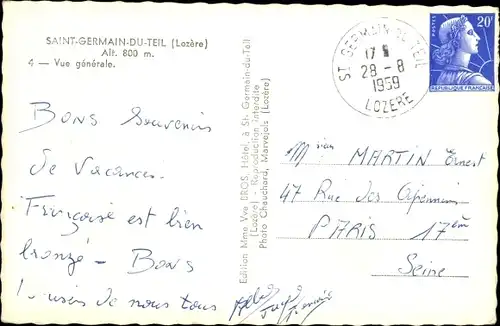 SAINT-GERMAIN-DU-TEIL (Lozère)
Alt. 800 m.
4 — Vue générale.
Bons Souvenirs
de Vacances.
Françoise est bien
bronzé - Bons
de nous tous
Edition Mme Vve BROS, Hôtel, à St-Germain-du-Teil
(Lozère) - Reproduction interdite
Photo Chauchard, Marvejols (Lozère)
ST GERMAIN-DU-TEIL
17 H
28 - 8
1959
LOZERE
POSTES
20F
REPUBLIQUE FRANÇAISE
MARTIN Ernest
47 Rue des Apennins
PARIS 17èm
Seine